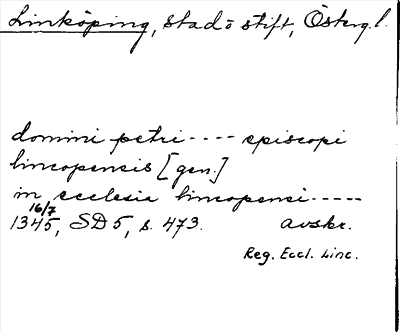 Linköping, stad o stift, Österg.l.
domini petri ---- episcopi
lincopensis [gen.]
in ecclesia lincopensi -----
16/7
1345, SD5, s. 473. avskr.
Reg. Eccl. Linc.